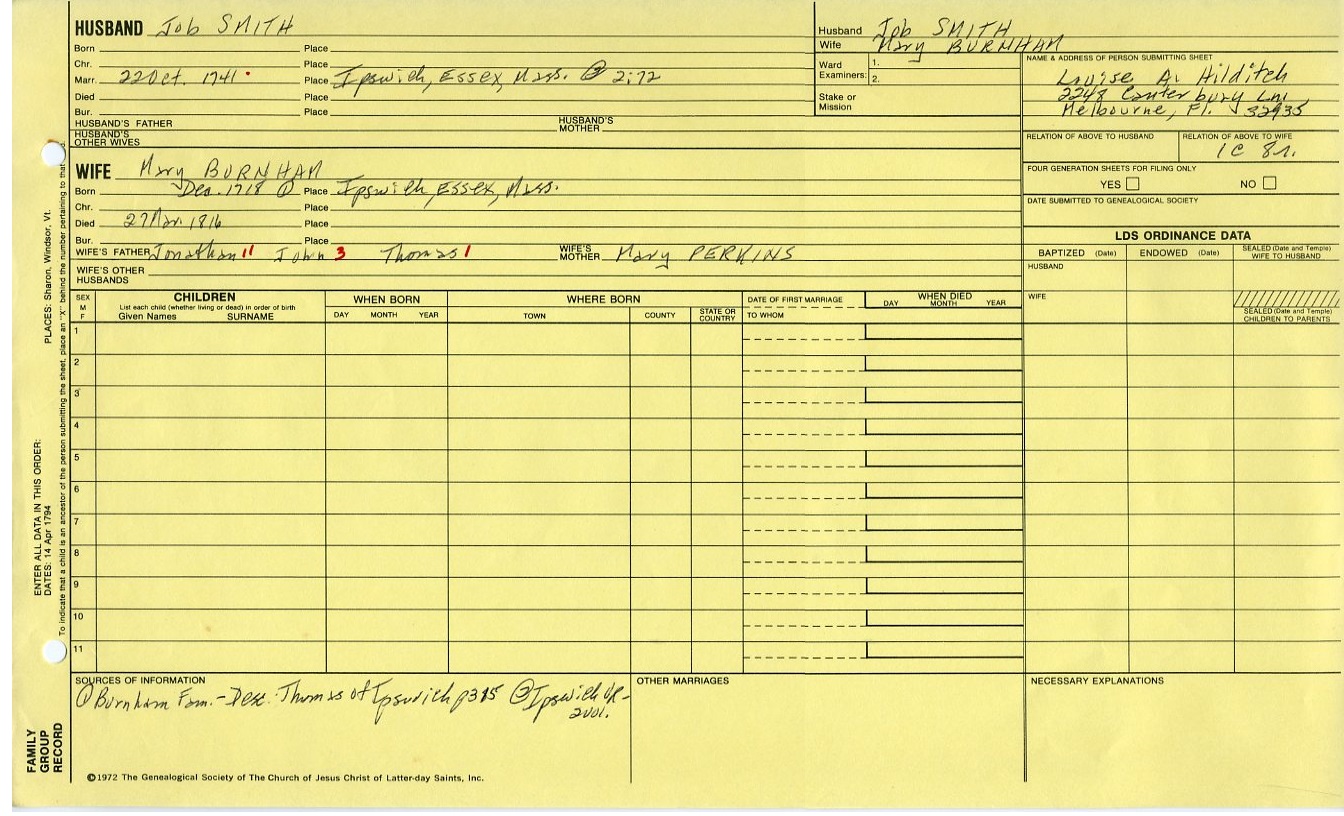 HUSBAND Job SMITH
Born Place
Chr. Place
Marr. 22 Oct. 1741 Place Ipswich, Essex, Mass. ② 2:72
Died Place
Bur. Place
HUSBAND'S FATHER HUSBAND'S MOTHER
HUSBAND'S OTHER WIVES
Husband Job SMITH
Wife Mary BURNHAM
Ward Examiners: 1.
2.
Stake or Mission
NAME & ADDRESS OF PERSON SUBMITTING SHEET
Louise A. Hilditch
2248 Canterbury Ln.
Melbourne, Fl. 32935
RELATION OF ABOVE TO HUSBAND RELATION OF ABOVE TO WIFE
1C 8r.
FOUR GENERATION SHEETS FOR FILING ONLY
YES NO
DATE SUBMITTED TO GENEALOGICAL SOCIETY
WIFE Mary BURNHAM
Born Dec. 1718 ① Place Ipswich, Essex, Mass.
Chr. Place
Died 27 Mar. 1816 Place
Bur. Place
WIFE'S FATHER Jonathan 11 John 3 Thomas 1 WIFE'S MOTHER Mary PERKINS
WIFE'S OTHER HUSBANDS
LDS ORDINANCE DATA
BAPTIZED (Date) ENDOWED (Date) SEALED (Date and Temple) WIFE TO HUSBAND
HUSBAND
WIFE
SEALED (Date and Temple) CHILDREN TO PARENTS
SEX M F
CHILDREN
List each child (whether living or dead) in order of birth
Given Names SURNAME
WHEN BORN
DAY MONTH YEAR
WHERE BORN
TOWN COUNTY STATE OR COUNTRY
DATE OF FIRST MARRIAGE
TO WHOM
WHEN DIED
DAY MONTH YEAR
1
2
3
4
5
6
7
8
9
10
11
SOURCES OF INFORMATION
① Burnham Fam.-Desc. Thomas of Ipswich p315 ② Ipswich VR-
2vol.
OTHER MARRIAGES
NECESSARY EXPLANATIONS
©1972 The Genealogical Society of The Church of Jesus Christ of Latter-day Saints, Inc.
FAMILY GROUP RECORD
ENTER ALL DATA IN THIS ORDER:
DATES: 14 Apr 1794
PLACES: Sharon, Windsor, Vt.
To indicate that a child is an ancestor of the person submitting the sheet, place an "X" behind the number pertaining to that